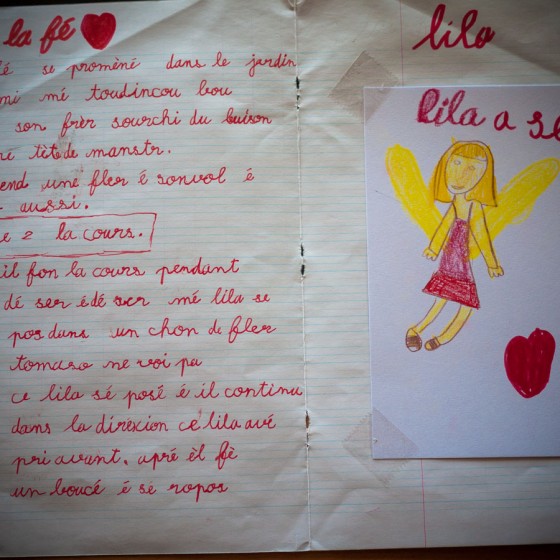 la fé
se promèné dans le jardin
mi mé toudincou bou
son frèr sourchi du buison
tète de manstr.
end une fler é sonvol é
aussi.
e 2 la cours.
il fon la cours pendant
dé ser édé ser mé lila se
pos dans un chon de fler
tomaso ne voi pa
ce lila sé posé é il continu
dans la direxion ce lila avé
pri avant. apré èl fè
un boucé é se ropos
lila
lila a se